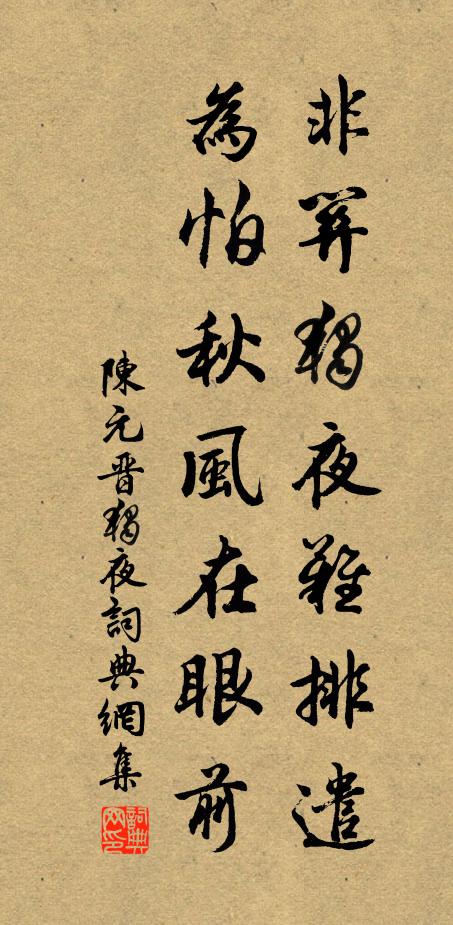 非關獨夜難排遣
為怕秋風在眼前
陳元晉獨夜詞典網集
詞典網印